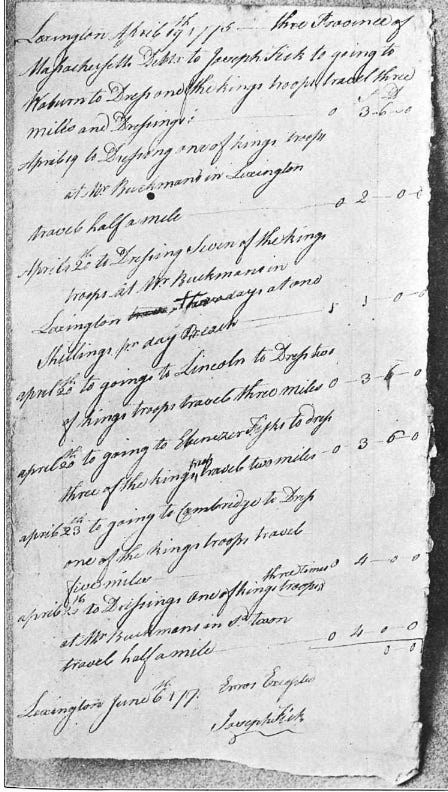 Lexington April 19th 1775 — thre Province of
Massachersetts Debtr to Joseph Fisk to going to
Woburn to Dress one of the kings troops travel three
miles and Dressings 0 3-6-0
April 19 to Dressing one of kings troops
at Mr Buckmans in Lexington
travels half a mile 0 2-0-0
April 20th to Dressing Seven of the kings
troops at Mr Buckmans in
Lexington three days at one
Shillings pr day Preach 1 1-0-0
april 20th to going to Lincoln to Dress two
of kings troops travels three miles 0-3-6-0
april 20th to going to Ebenezer Fisks to dress
three of the kings troops travels two miles 0 3 6-0
april 23th to going to Cambridge to Dress
one of the kings troops travels
five miles 0 4-0-0
april to Dressings one of kings troops three times
at Mr Buckmans in sd town
travels half a mile 0 4-0-0
0 0
Lexington June 6th 177 Erros Excepted
Joseph Fisk